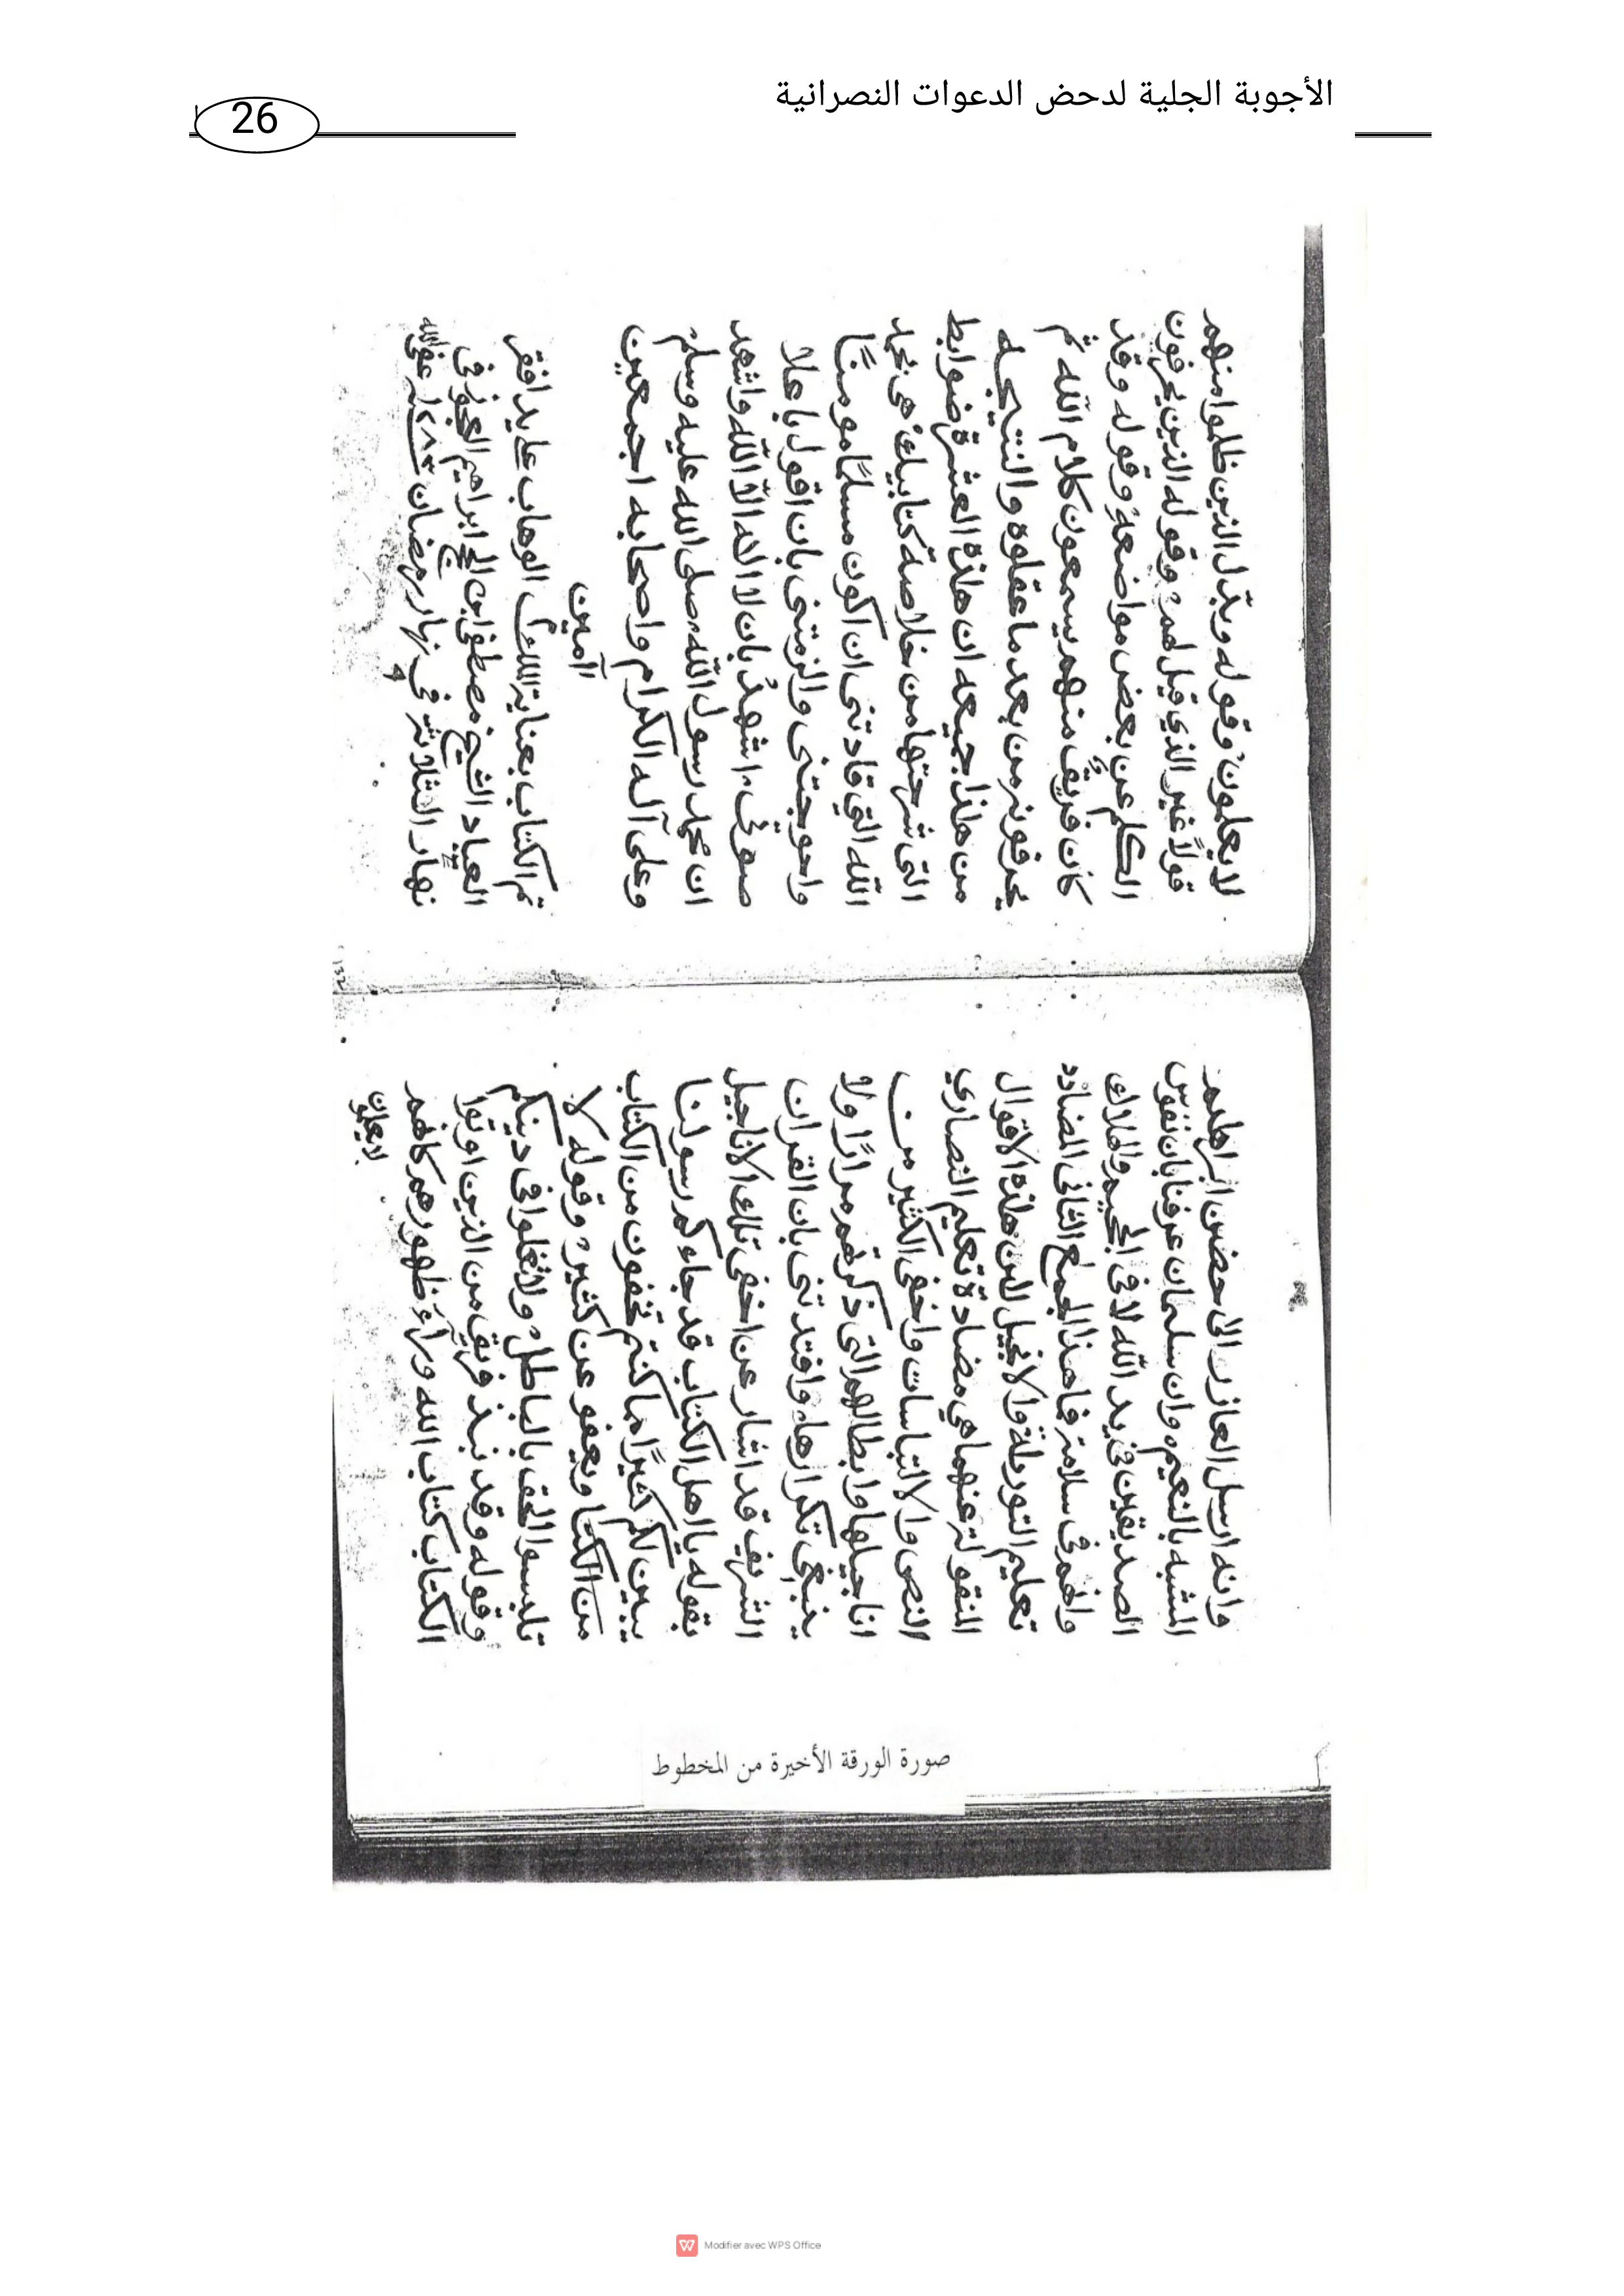 الأجوبة الجلية لدحض الدعوات النصرانية
26
وانه ارسل العازر الى حضن ابراهيم
المشبه بالنعيم وان سلمان عرفنا بان نفوس
الصديقين في يد الله لا في الجحيم والهلاك
وانهم في سلامة فاهذا المجمع الثاني المضادد
تعليم التورية والانجيل للن هاذه الاقوال
المنقولة عنهما هي مضادة تعليم النصاري
النص والالتباسات واخفى الكثير من
اناجيلها وابطالهم التي ذكرتهم مرارًا ولا
ينبغي تكرارها، وافتدتنى بان القران
الشريف قد اشار عن اخفى تلك الاناجيل
بقوله يا اهل الكتاب قد جاءكم رسولنا
يبين لكم كثيرًا مما كنتم تخفون من الكتاب
من الكتا ويعفو عن كثير وقوله لا
تلبسوا الحق بالباطل ولا تغلوا في دينكم
وقوله وقد نبذ فريق من الذين اوتوا
الكتاب كتاب الله وراء ظهورهم كانهم
لا يعلمون
لا يعلمون وقوله وبدّل الذين ظلموا منهم
قولاً غير الذي قيل لهم وقوله الذين يحرفون
الكلم عن بعض مواضعه وقوله وقد
كان فريق منهم يسمعون كلام الله ثم
يحرفونه من بعد ما عقلوه والنتيجه
من هاذا جميعه ان هاذه العشرة ضوابط
التي شرحتها من خلاصة كتابيك هي
الله التي قادتنى ان اكون مسلمًا مومنًا
واحوجتنى والزمتنى بان اقول باعلا
صوتي اشهدُ بان لا اله الا الله واشهد
ان محمد رسول الله صلى الله عليه وسلم
وعلى آله الكرام واصحابه اجمعين
آمين
تم الكتاب بعناية الملك الوهاب على يد افقر
العباد الشيخ مصطفى ابن الحج ابراهيم في
نهار الثلاثة في نهار رمضان
صورة الورقة الأخيرة من المخطوط
Modifier avec WPS Office